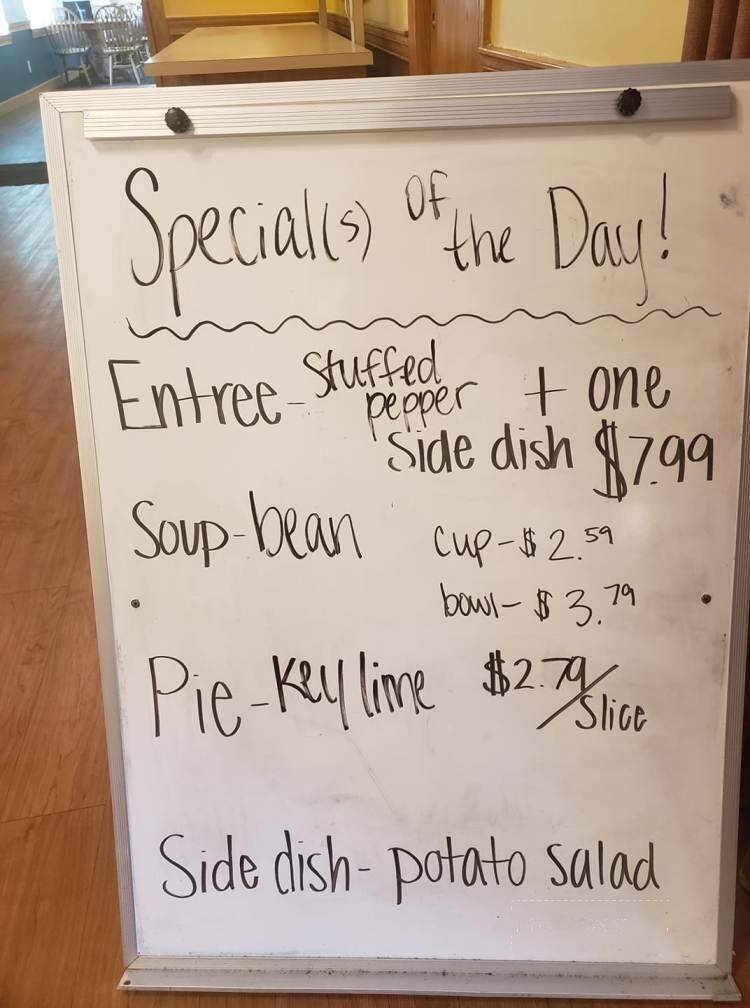 Special(s) of the Day!
Entree - Stuffed pepper + one
Side dish $7.99
Soup - bean cup - $2.59
bowl - $3.79
Pie - Key lime $2.79/Slice
Side dish - potato salad